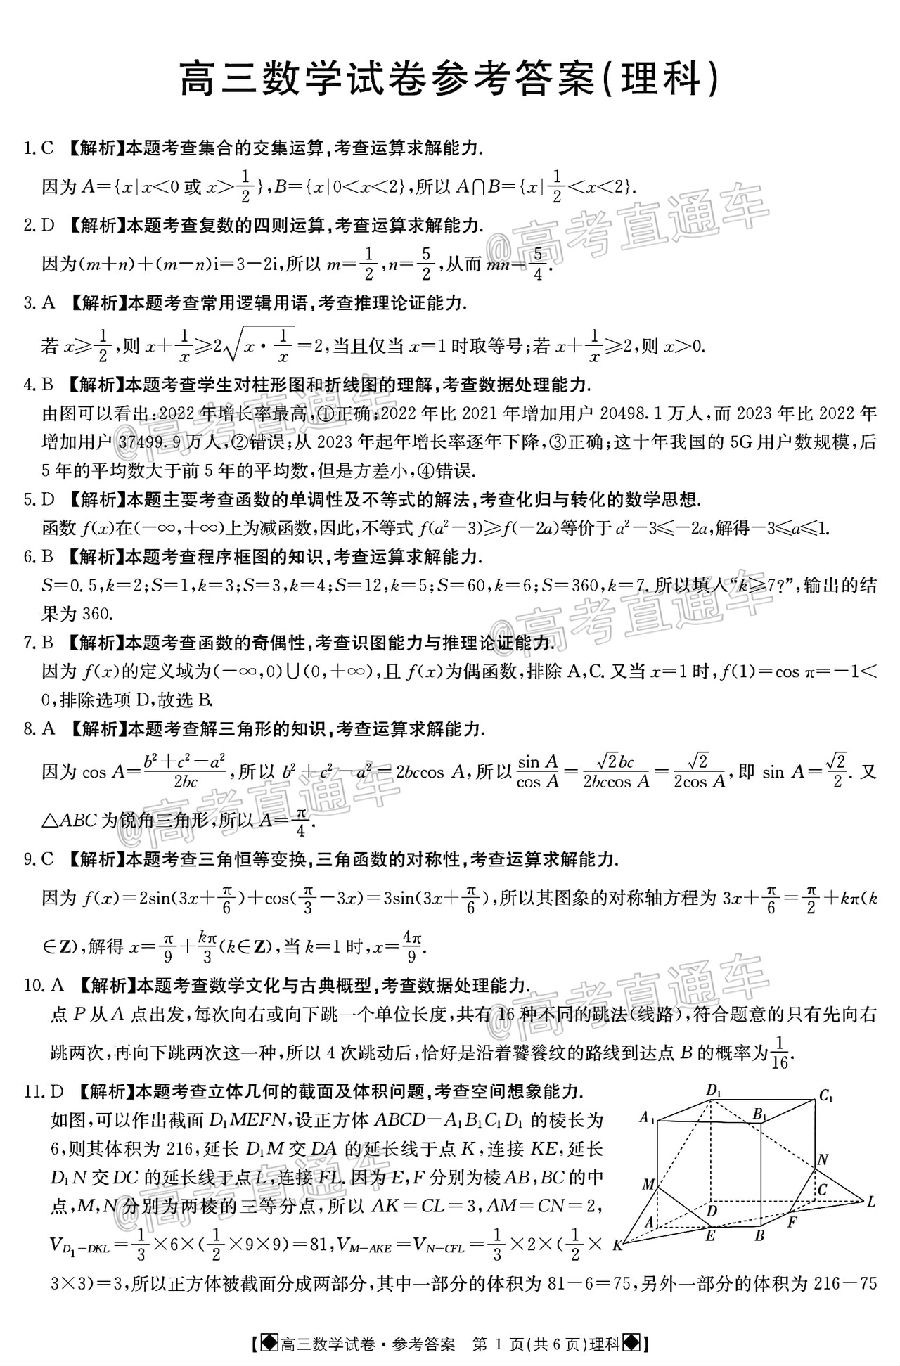 高三数学试卷参考答案(理科)
1. C 【解析】本题考查集合的交集运算,考查运算求解能力.
因为 A={x|x<0 或 x>1/2},B={x|0<x<2},所以 A∩B={x|1/2<x<2}.
2. D 【解析】本题考查复数的四则运算,考查运算求解能力.
因为(m+n)+(m-n)i=3-2i,所以 m=1/2,n=5/2,从而 mn=5/4.
3. A 【解析】本题考查常用逻辑用语,考查推理论证能力.
若 x≥1/2,则 x+1/x≥2√(x·1/x)=2,当且仅当 x=1 时取等号;若 x+1/x≥2,则 x>0.
4. B 【解析】本题考查学生对柱形图和折线图的理解,考查数据处理能力.
由图可以看出:2022 年增长率最高,①正确;2022 年比 2021 年增加用户 20498.1 万人,而 2023 年比 2022 年
增加用户 37499.9 万人,②错误;从 2023 年起年增长率逐年下降,③正确;这十年我国的 5G 用户数规模,后
5 年的平均数大于前 5 年的平均数,但是方差小,④错误.
5. D 【解析】本题主要考查函数的单调性及不等式的解法,考查化归与转化的数学思想.
函数 f(x)在(-∞,+∞)上为减函数,因此,不等式 f(a²-3)≥f(-2a)等价于 a²-3≤-2a,解得-3≤a≤1.
6. B 【解析】本题考查程序框图的知识,考查运算求解能力.
S=0.5,k=2;S=1,k=3;S=3,k=4;S=12,k=5;S=60,k=6;S=360,k=7. 所以填入“k≥7?”,输出的结
果为 360.
7. B 【解析】本题考查函数的奇偶性,考查识图能力与推理论证能力.
因为 f(x)的定义域为(-∞,0)∪(0,+∞),且 f(x)为偶函数,排除 A,C. 又当 x=1 时,f(1)=cos π=-1<
0,排除选项 D,故选 B.
8. A 【解析】本题考查解三角形的知识,考查运算求解能力.
因为 cos A=(b²+c²-a²)/2bc,所以 b²+c²-a²=2bccos A,所以 sin A/cos A=√2bc/2bccos A=√2/2cos A,即 sin A=√2/2. 又
△ABC 为锐角三角形,所以 A=π/4.
9. C 【解析】本题考查三角恒等变换,三角函数的对称性,考查运算求解能力.
因为 f(x)=2sin(3x+π/6)+cos(π/3-3x)=3sin(3x+π/6),所以其图象的对称轴方程为 3x+π/6=π/2+kπ(k
∈Z),解得 x=π/9+kπ/3(k∈Z),当 k=1 时,x=4π/9.
10. A 【解析】本题考查数学文化与古典概型,考查数据处理能力.
点 P 从 A 点出发,每次向右或向下跳一个单位长度,共有 16 种不同的跳法(线路),符合题意的只有先向右
跳两次,再向下跳两次这一种,所以 4 次跳动后,恰好是沿着饕餮纹的路线到达点 B 的概率为1/16.
11. D 【解析】本题考查立体几何的截面及体积问题,考查空间想象能力.
如图,可以作出截面 D₁MEFN,设正方体 ABCD-A₁B₁C₁D₁ 的棱长为
6,则其体积为 216,延长 D₁M 交 DA 的延长线于点 K,连接 KE,延长
D₁N 交 DC 的延长线于点 L,连接 FL. 因为 E,F 分别为棱 AB,BC 的中
点,M,N 分别为两棱的三等分点,所以 AK=CL=3,AM=CN=2,
V_{D₁-DKL}=1/3×6×(1/2×9×9)=81,V_{M-AKE}=V_{N-CFL}=1/3×2×(1/2×
3×3)=3,所以正方体被截面分成两部分,其中一部分的体积为 81-6=75,另外一部分的体积为 216-75
D₁
C₁
A₁
B₁
N
M
D
C
L
A
E
B
F
K
【◆高三数学试卷·参考答案 第 1 页(共 6 页)理科◆】
@高考直通车
@高考直通车
@高考直通车
@高考直通车
@高考直通车
@高考直通车